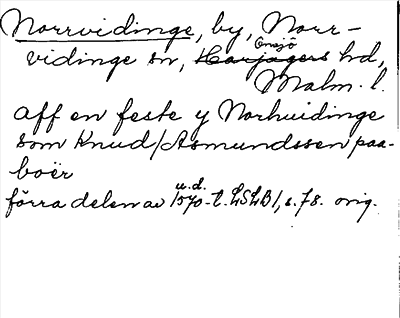 Norrvidinge, by, Norr-
vidinge sn, Harjagers Onsjö hd,
Malm. l.
aff en feste y Norhuidinge
som Knud/Asmundssen paa-
boër
förra delen av 1570-t. u.d. LSLB1, s. 78. orig.